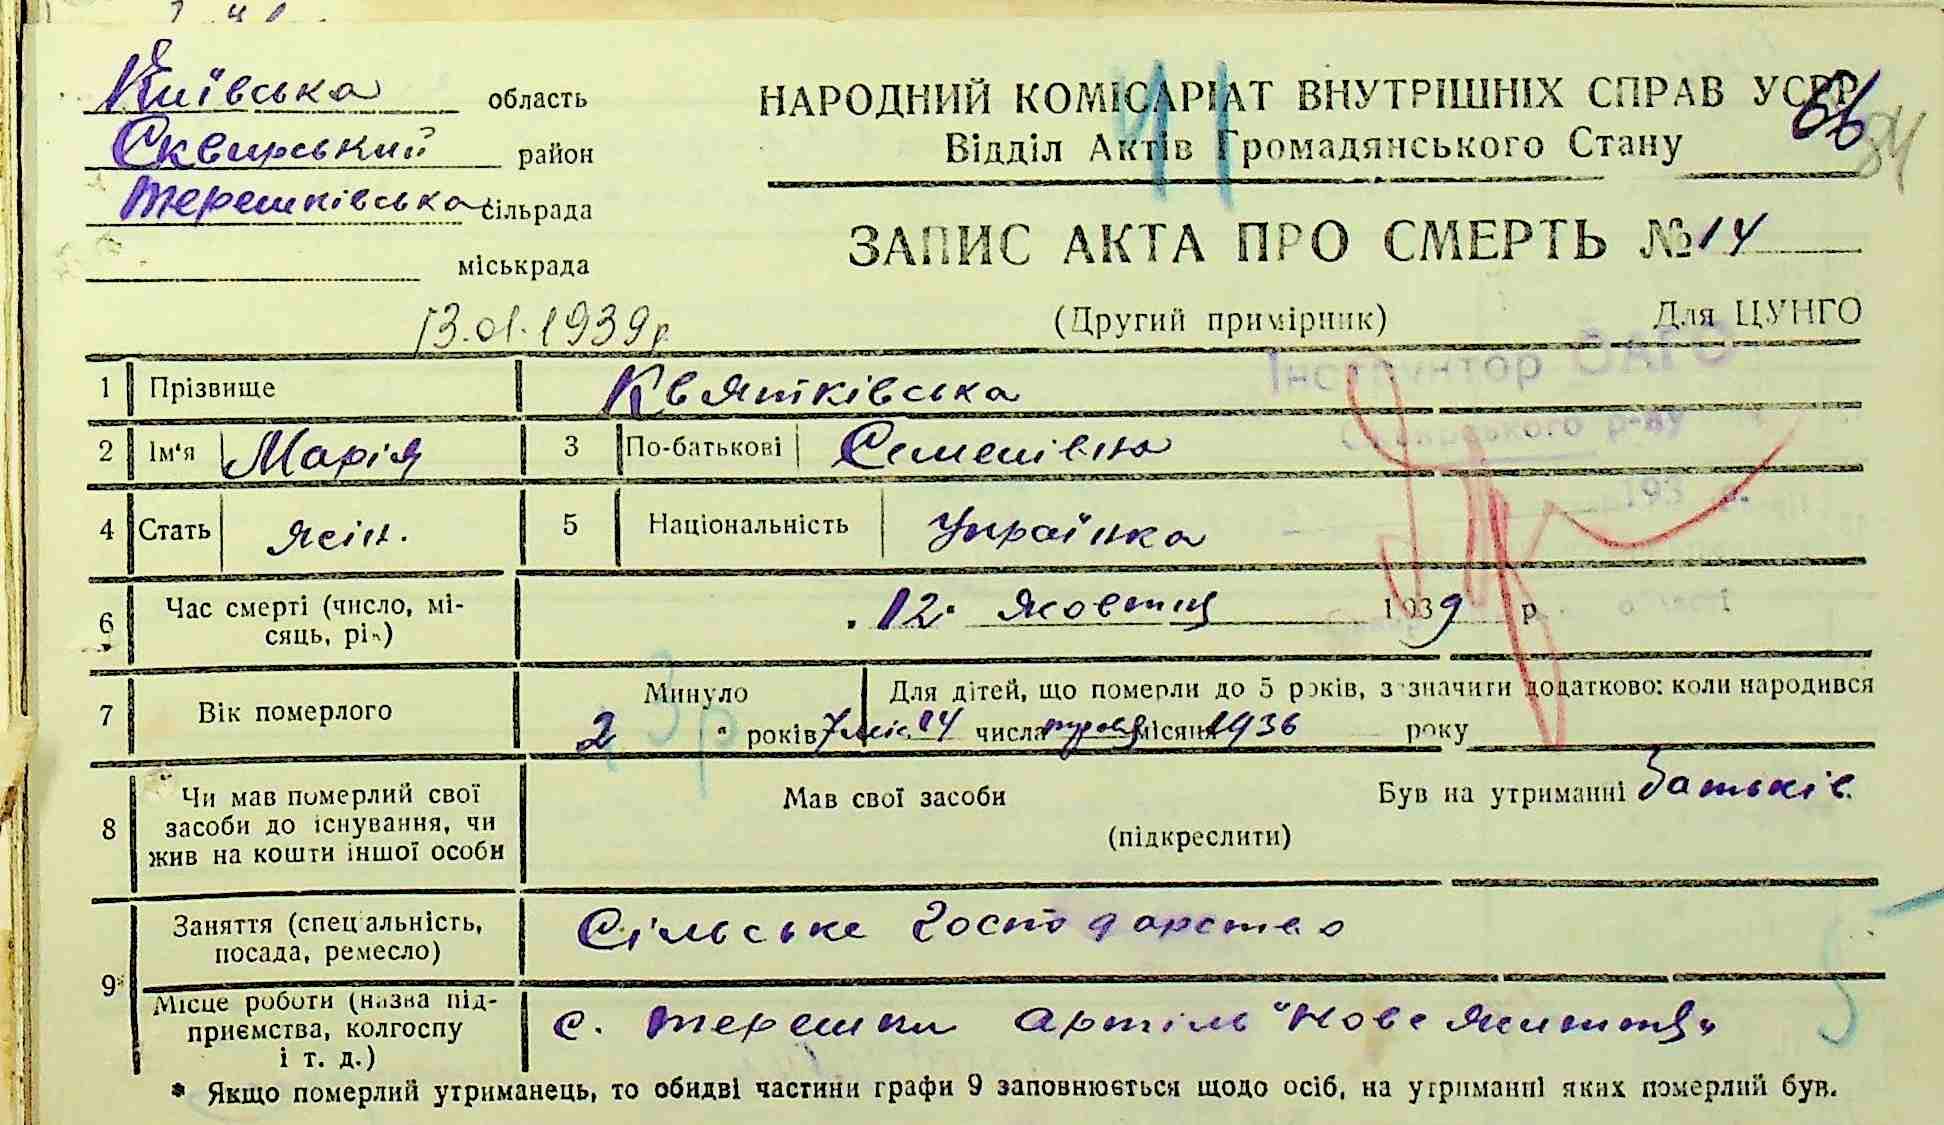 Київська область
Сквирський район
Терешківська сільрада
міськрада
НАРОДНИЙ КОМІСАРІАТ ВНУТРІШНІХ СПРАВ УСРР
Відділ Актів Громадянського Стану
66
84
ЗАПИС АКТА ПРО СМЕРТЬ № 14
(Другий примірник) Для ЦУНГО
13.01.1939 р
Інструктор ОАГС
Сквирського р-ну
193 р.
1 Прізвище Квятківська
2 Ім'я Марія 3 По-батькові Семенівна
4 Стать жін. 5 Національність Українка
6 Час смерті (число, мі-
сяць, рік) 12 жовтня 1939 р.
7 Вік померлого Минуло 2 років 7 міс.
3 р
Для дітей, що померли до 5 років, зазначити додатково: коли народився
14 числа травня місяця 1936 року
8 Чи мав померлий свої
засоби до існування, чи
жив на кошти іншої особи
Мав свої засоби Був на утриманні батьків.
(підкреслити)
9* Заняття (спеціальність,
посада, ремесло) Сільське господарство
Місце роботи (назва під-
приємства, колгоспу
і т. д.) с. Терешки Артіль "Нове Життя"
* Якщо померлий утриманець, то обидві частини графи 9 заповнюється щодо осіб, на утриманні яких померлий був.